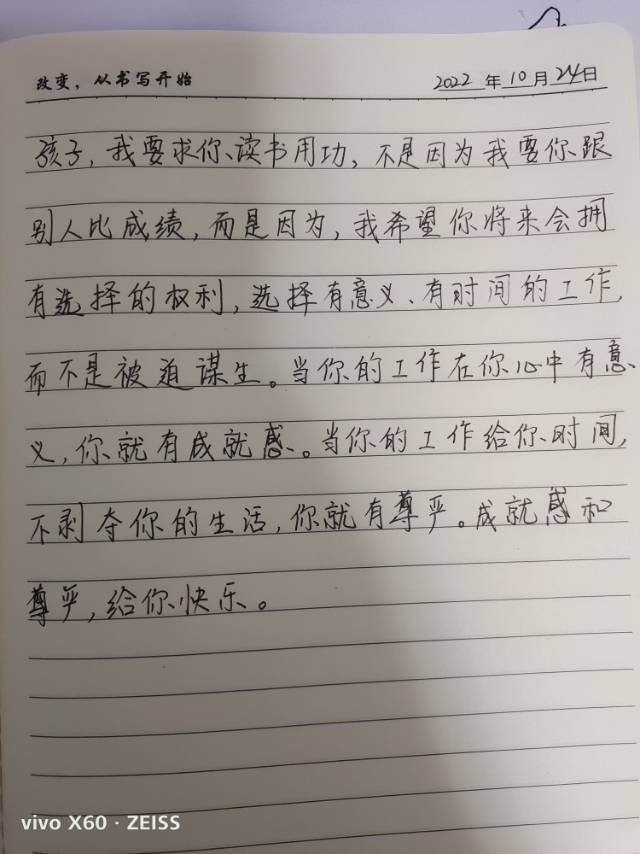 改变，从书写开始 2022年10月24日
孩子，我要求你读书用功，不是因为我要你跟
别人比成绩，而是因为，我希望你将来会拥
有选择的权利，选择有意义、有时间的工作，
而不是被迫谋生。当你的工作在你心中有意
义，你就有成就感。当你的工作给你时间，
不剥夺你的生活，你就有尊严。成就感和
尊严，给你快乐。
vivo X60 · ZEISS